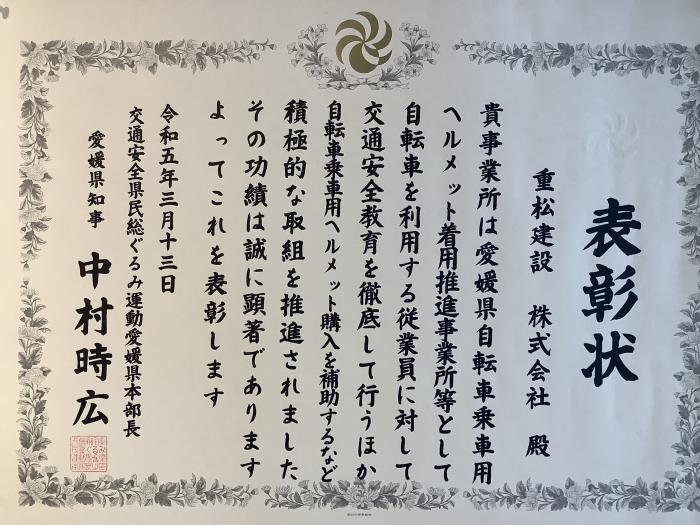 表彰状
重松建設 株式会社 殿
貴事業所は愛媛県自転車乗車用
ヘルメット着用推進事業所等として
自転車を利用する従業員に対して
交通安全教育を徹底して行うほか
自転車乗車用ヘルメット購入を補助するなど
積極的な取組を推進されました
その功績は誠に顕著であります
よってこれを表彰します
令和五年三月十三日
交通安全県民総ぐるみ運動愛媛県本部長
愛媛県知事 中村時広